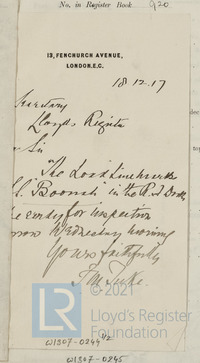 No. in Register Book 920
13, FENCHURCH AVENUE,
LONDON, E.C.
18.12.17
Secretary
Lloyds Register
Sir
"The
"Boonah" in the
ready for inspection
Wednesday morning
Yours faithfully
© 2021
LR
Lloyd's Register
Foundation
W1307-0244 1/2
W1307-0245